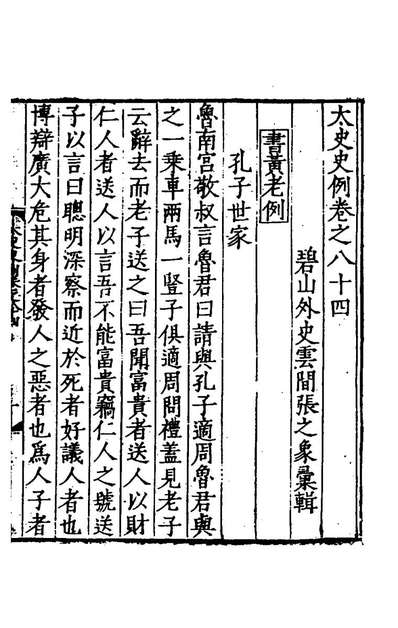 太史史例卷之八十四
碧山外史雲間張之象彙輯
書黃老例
孔子世家
魯南宮敬叔言魯君曰請與孔子適周魯君與
之一乘車兩馬一豎子俱適周問禮蓋見老子
云辭去而老子送之曰吾聞富貴者送人以財
仁人者送人以言吾不能富貴竊仁人之號送
子以言曰聰明深察而近於死者好議人者也
博辯廣大危其身者發人之惡者也爲人子者